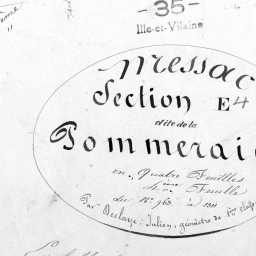 - 35 -
Ille-et-Vilaine
Messac
Section E4
dite de la
Pommerai
en quatre Feuilles
4.ème Feuille
du N° 963 à
Par Julien, géomètre de 1ère